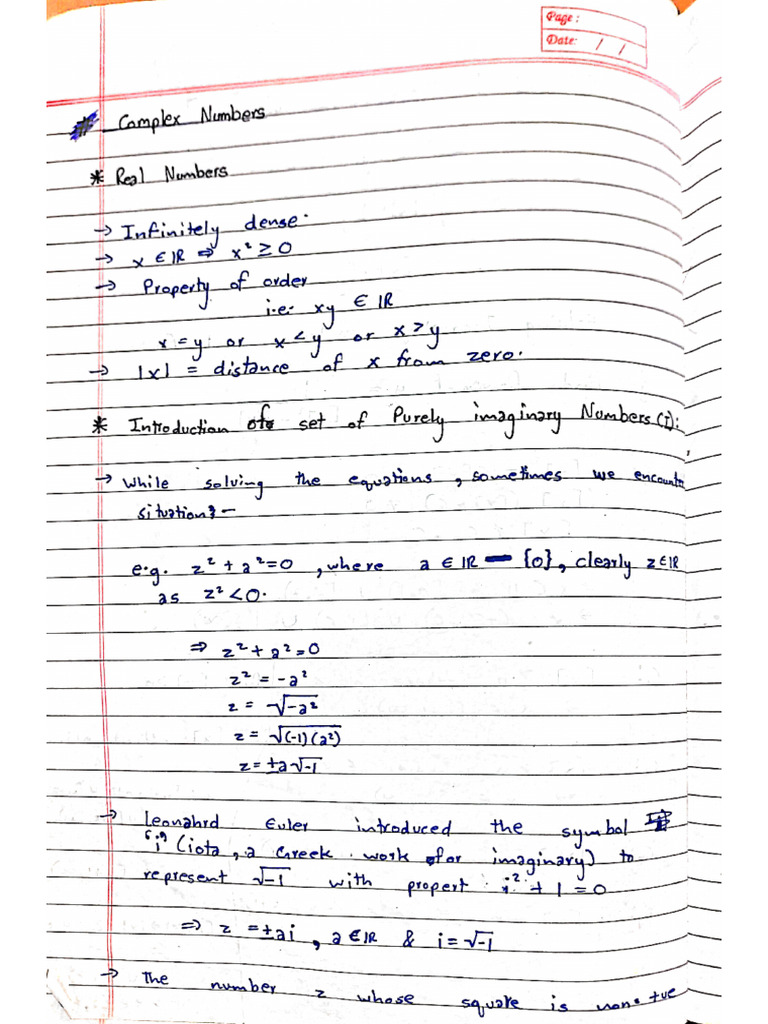 Page :
Date: / /
# Complex Numbers
* Real Numbers
→ Infinitely dense.
→ x ∈ IR ⇒ x² ≥ 0
→ Property of order
i.e. xy ∈ IR
x = y or x < y or x > y
→ |x| = distance of x from zero.
* Introduction of set of Purely imaginary Numbers (i):
→ While solving the equations, sometimes we encounte
situation :-
e.g. z² + a² = 0 , where a ∈ IR — {0}, clearly z ∈ IR
as z² < 0.
⇒ z² + a² = 0
z² = -a²
z = √-a²
z = √(-1)(a²)
z = ±a√-1
→ Leonahrd Euler introduced the symbol
"i" (iota, a Greek work for imaginary) to
represent √-1 with propert i² + 1 = 0
⇒ z = ±ai , a ∈ IR & i = √-1
→ The number z whose square is non +ve